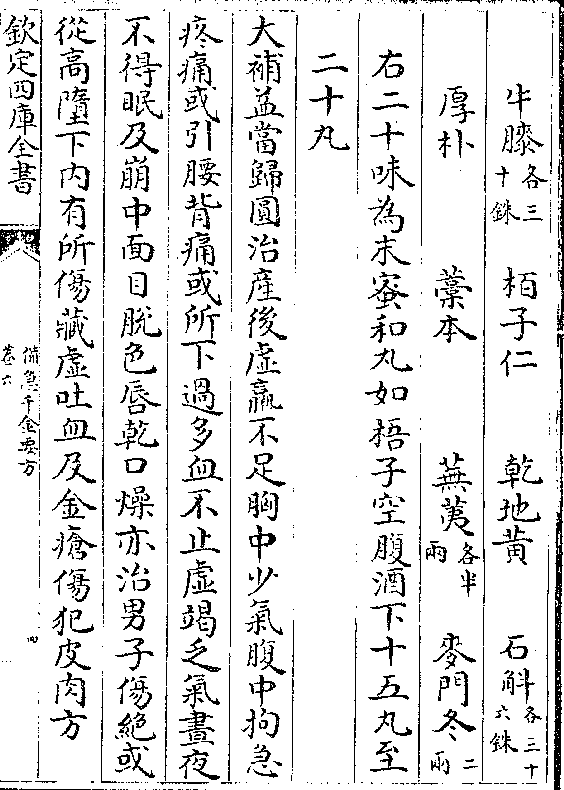 牛膝各三十銖 栢子仁 乾地黄 石斛各三十六銖
厚朴 藁本 蕪荑各半兩 麥門冬二兩
右二十味為末蜜和丸如梧子空腹酒下十五丸至
二十丸
大補益當歸圓治産後虚羸不足胸中少氣腹中拘急
疼痛或引腰背痛或所下過多血不止虚竭乏氣晝夜
不得眠及崩中面目脱色唇乾口燥亦治男子傷絶或
從高墮下内有所傷藏虚吐血及金瘡傷犯皮肉方
欽定四庫全書
備急千金要方
卷六
四